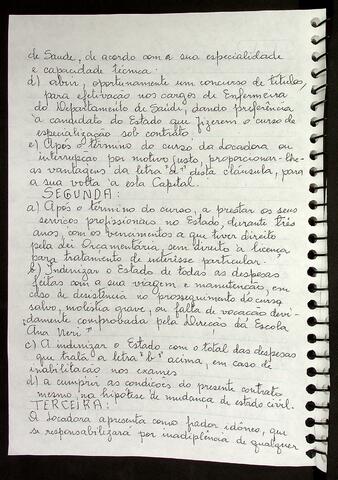 de Saude, de acordo com a sua especialidade
e capacidade técnica.
d) abrir, oportunamente um concurso de títulos,
para efetivação nos cargos de Enfermeira
do Departamento de Saúde, dando preferência
à candidato do Estado que fizerem o curso de
especialização sob contrato.
e) Após o término do curso da Locadora ou
interrupção por motivo justo, proporcionar-lhe
as vantagens da letra "a" desta cláusula, para
a sua volta à esta Capital.
SEGUNDA:
a) Após o término do curso, a prestar os seus
serviços profissionais no Estado, durante três
anos, com os vencimentos a que tiver direito
pela lei Orçamentária, sem direito à licença
para tratamento de interesse particular.
b) Indenizar o Estado de todas as despesas
feitas com a sua viagem e manutenção, em
caso de desistência no prosseguimento do curso
salvo, moléstia grave, ou falta de vocação devi-
damente comprovada pela Direção da Escola
"Ana Neri".
c) A indenizar o Estado com o total das despesas
que trata a letra "b" acima, em caso de
inabilitação nos exames
d) a cumprir as condições do presente contrato
mesmo, na hipótese de mudança de estado civil.
TERCEIRA:
A Locadora apresenta como fiador idôneo, que
se responsabilizará por inadiplência de qualquer